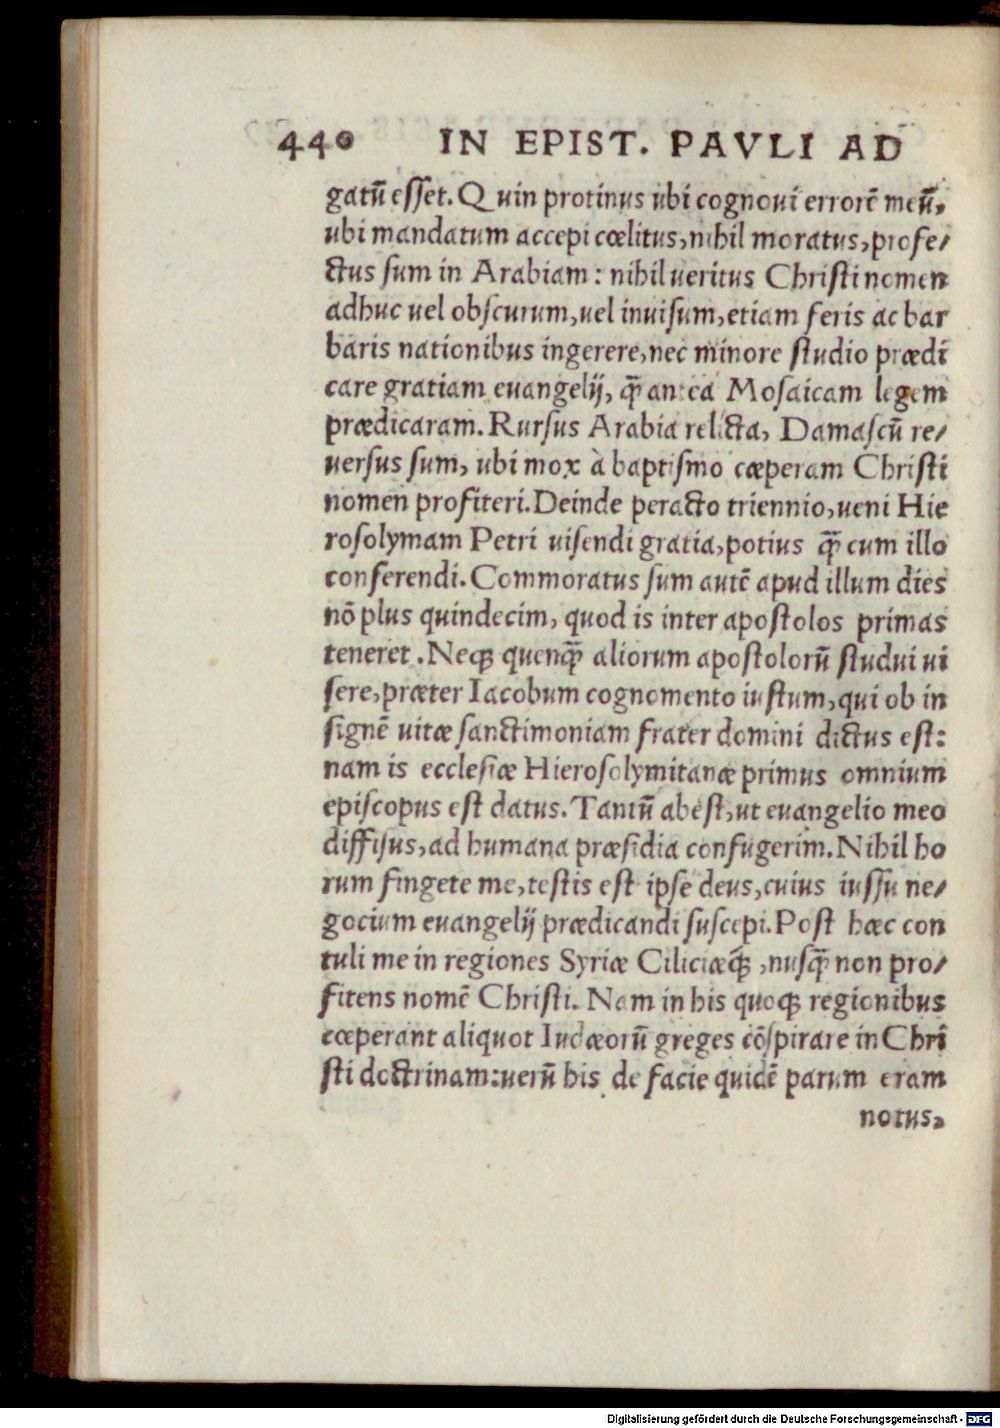 440 IN EPIST. PAVLI AD
gatũ esset. Quin protinus ubi cognoui errorẽ meũ,
ubi mandatum accepi cœlitus, nihil moratus, profe/
ctus sum in Arabiam: nihil ueritus Christi nomen
adhuc uel obscurum, uel inuisum, etiam feris ac bar
baris nationibus ingerere, nec minore studio prædi
care gratiam euangelij, q̃ antea Mosaicam legem
prædicaram. Rursus Arabia relicta, Damascũ re/
uersus sum, ubi mox à baptismo cœperam Christi
nomen profiteri. Deinde peracto triennio, ueni Hie
rosolymam Petri uisendi gratia, potius q̃ cum illo
conferendi. Commoratus sum autẽ apud illum dies
nõ plus quindecim, quod is inter apostolos primas
teneret. Neqꝫ quenq̃ aliorum apostolorũ studui ui
sere, præter Iacobum cognomento iustum, qui ob in
signẽ uitæ sanctimoniam frater domini dictus est:
nam is ecclesiæ Hierosolymitanæ primus omnium
episcopus est datus. Tantũ abest, ut euangelio meo
diffisus, ad humana præsidia confugerim. Nihil ho
rum fingete me, testis est ipse deus, cuius iussu ne/
gocium euangelij prædicandi suscepi. Post hæc con
tuli me in regiones Syriæ Ciliciæq́ꝫ, nusq̃ non pro/
fitens nomẽ Christi. Nam in his quoqꝫ regionibus
cœperant aliquot Iudæorũ greges cõspirare in Chri
sti doctrinam: uerũ his de facie quidẽ parum eram
notus,
Digitalisierung gefördert durch die Deutsche Forschungsgemeinschaft - DFG